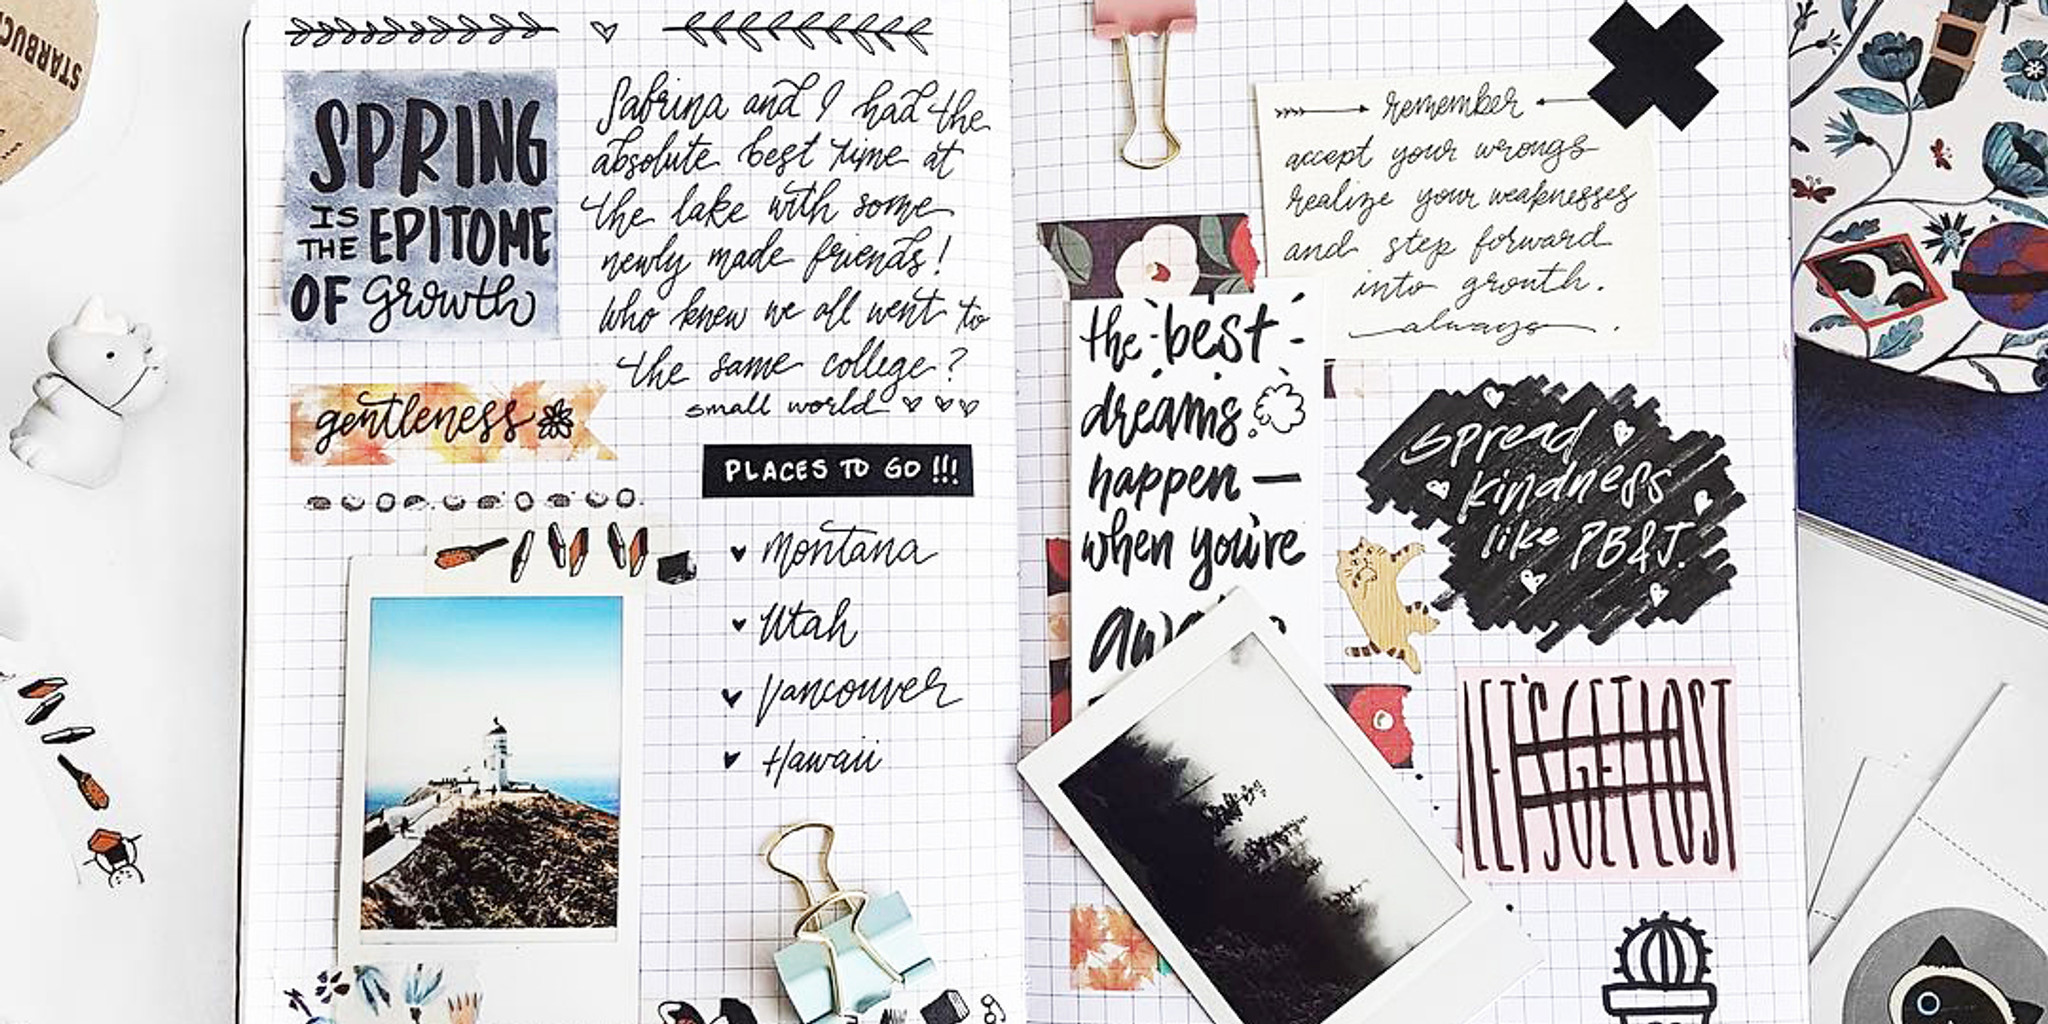 STARBUC
SPRING
IS
THE EPITOME
OF Growth
Sabrina and I had the
absolute best time at
the lake with some
newly made friends!
Who knew we all went to
the same college?
small world
gentleness
PLACES TO GO !!!
Montana
Utah
Vancouver
Hawaii
remember
accept your wrongs
realize your weaknesses
and step forward
into growth.
always.
the best
dreams
happen —
when you're
spread
kindness
like PB&J.
LET'S GET LOST